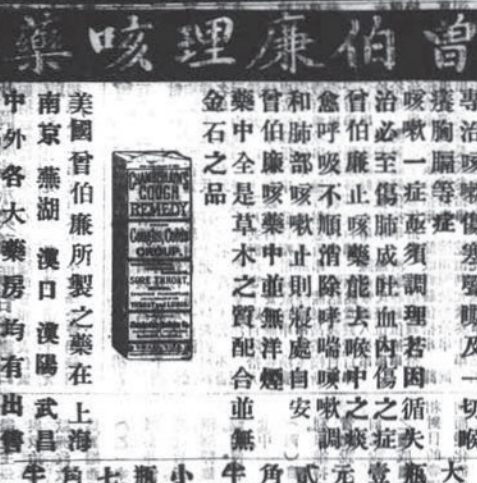 曾伯廉理咳藥
專治咳嗽傷寒聲嘎及一切喉
癢胸膈等症
咳嗽一症亟須調理若因循失
治必至傷肺成吐血內傷之症
曾伯廉止咳藥能去喉中之痰
愈呼吸不順消除哮喘嗽調
和肺部咳嗽止則寢處自安
曾伯廉咳藥中並無洋煙
藥中全是草木之質配合並無
金石之品
CHAMBERLAIN'S
COUGH
REMEDY
Coughs, Colds
CROUP,
SORE THROAT,
美國曾伯廉所製之藥在 上海
南京 蕪湖 漢口 漢陽 武昌
中外各大藥房均有出售
大瓶壹元貳角半 小瓶七角半